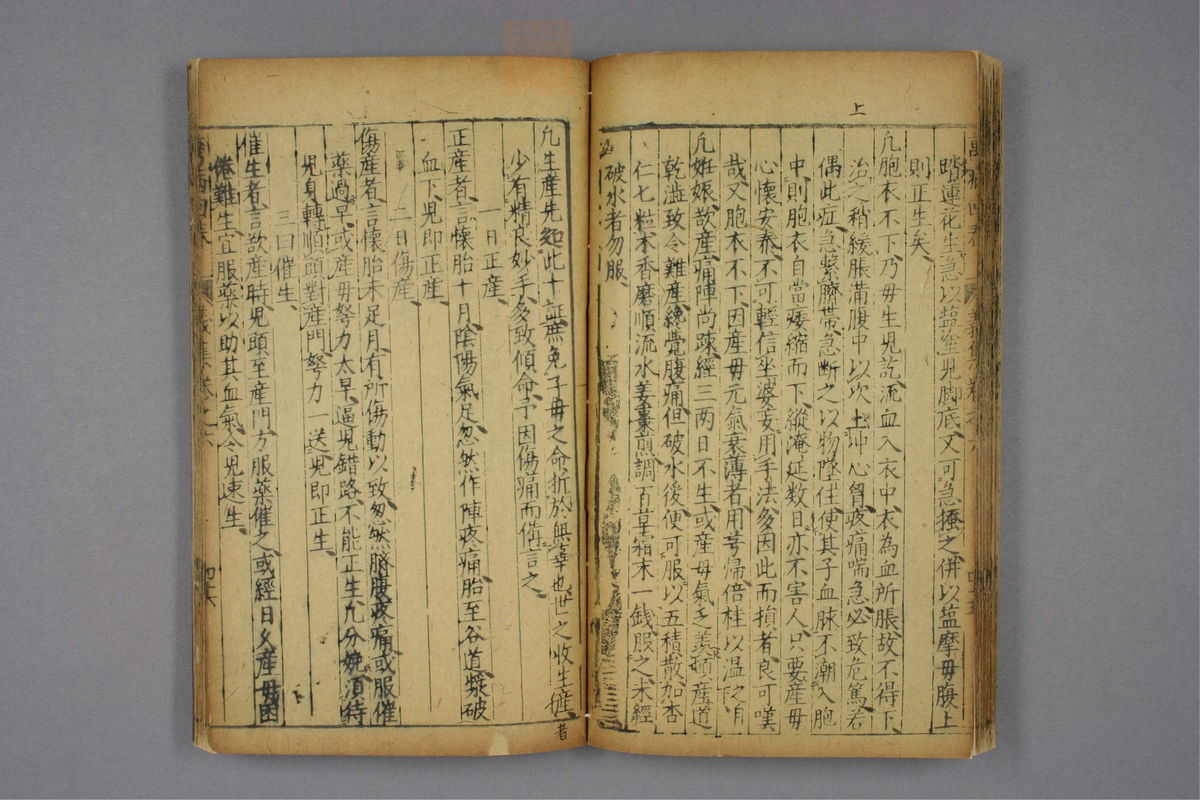 上
踏蓮花生急以盐塗児脚底又可急搔之併以盐摩母腹上
則正生矣
凢胞衣不下乃母生児訖流血入衣中衣為血所脹故不得下
治之稍緩脹滿腹中以次上冲心胷疼痛喘急必致危篤若
偶此症急繫臍带急断之以物墜住使其子血脉不潮入胞
中則胞衣自當痿縮而下縱淹延数日亦不害人只要産母
心懷安泰不可輕信坐婆妄用手法多因此而損者良可嘆
哉又胞衣不下因産母元氣衰薄者用芎帰倍桂以温之
凢姙娠欲産痛陣尚踈經三两日不生或産母氣乏産道
乾澁致令難産纔覺腹痛但破水後便可服以五積散加杏
仁七粒木香磨順流水姜棗煎調百草霜末一錢服之未經
破水者勿服
凢生産先起此十証無免子母之命折於無辜也世之收生者
少有精良妙手多致傾命予因傷痛而俻言之
一曰正産
正産者言懷胎十月陰陽氣足忽然作陣疼痛胎至谷道漿破
血下児即正産
二曰傷産
傷産者言懷胎未足月有所傷動以致忽然臍腹疼痛或服催
薬過早或産母努力太早逼児錯路不能正生凢分娩須待
児身轉順頭對産門努力一送児即正生
三曰催生
催生者言欲産時児頭至産門方服薬催之或經日久産母困
倦難生宜服薬以助其血氣令児速生